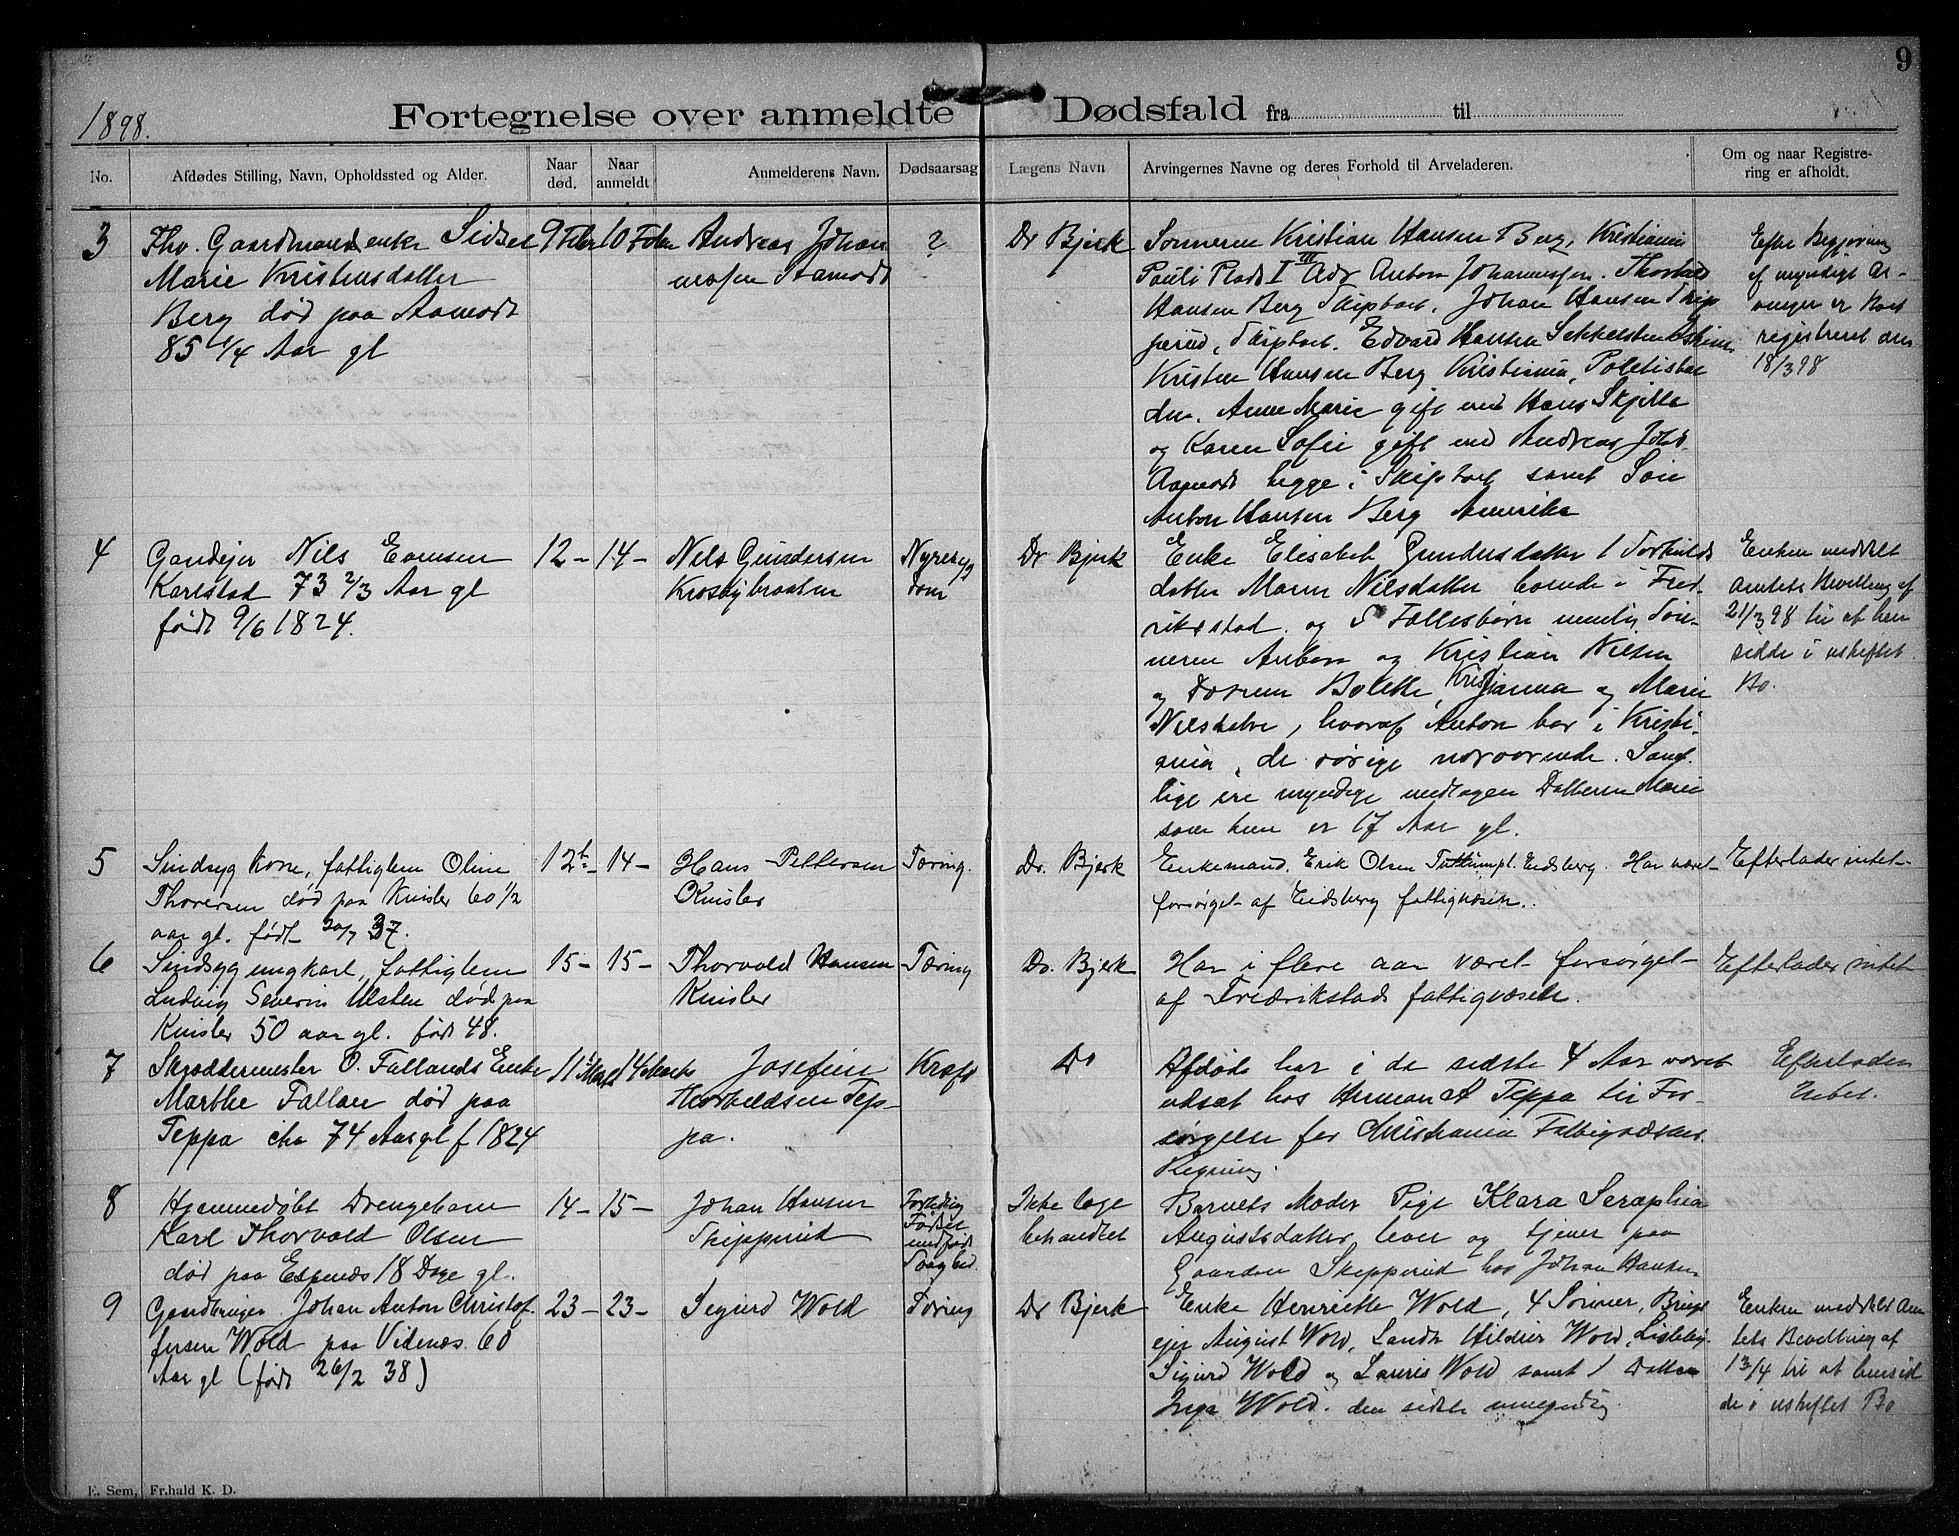 9
1898.
Fortegnelse over anmeldte Dødsfald fra til
No.
Afdødes Stilling, Navn, Opholdssted og Alder.
Naar død.
Naar anmeldt
Anmelderens Navn.
Dødsaarsag
Lægens Navn
Arvingernes Navne og deres Forhold til Arveladeren.
Om og naar Registre-
ring er afholdt.
3
Fhv. Gaardmandsenke Sidsel
Marie Kristensdatter
Berg død paa Aamodt
85 1/4 Aar gl
9 Febr
10 Febr
Andreas Johan
nesen Aamodt
?
Dr Bjerk
Sønnerne Kristian Hansen Berg, Kristiania
Pauls Plads I III Adr Anton Johannessen. Thorvald
Hansen Berg Skiptvet. Johan Hansen Skip
perud, Skiptvet. Edvard Hansen Sekkelsten Askim
Kristen Hansen Berg Kristiania,
Anne Marie gift med Hans Skjilte
og Karen Sofie gift med Andreas Johs
Aamodt begge i Skiptvet samt Søn
Anton Hansen Berg Amerika
Efter Begjæring
af myndige Ar-
vinger er Boet
registreret den
18/3 98
4
Gaardejer Nils Evensen
Karlstad 73 2/3 Aar gl
født 9/6 1824.
12 -
14 -
Nils Gundersen
Krosbybraaten
Nyresyg
dom
Dr Bjerk
Enke Elisabet Gundersdatter 1 Forhulds
datter Maren Nilsdatter boende i Fred-
rikstad. og 5 Fællesbørn nemlig Søn-
nerne Anton og Kristian Nilsen
og Døtrene Bolette, Kristjanna og Marie
Nilsdøtre, hvoraf Anton bor i Kristi-
ania, de øvrige nærværende. Samt-
lige ere myndige undtagen Datteren Marie
som kun er 17 Aar gl.
Enken meddelt
Amtets Bevilling af
21/3 98 til at hen
sidde i uskiftet
Bo.
5
Sindsyg kone, fattiglem Oline
Thoresen død paa Knisler 60 1/2
aar gl. født 20/7 37.
12te -
14 -
Hans Pettersen
Knisler
Tæring.
Dr. Bjerk
Enkemand. Erik Olsen Eidsberg. Har været
forsørget af Eidsberg fattigvæsen.
Efterlader intet
6
Sindsyg ungkarl, fattiglem
Ludvig Severin Ulsten død paa
Knisler 50 aar gl. født 48.
15 -
15 -
Thorvald Hansen
Knisler
Tæring
Dr. Bjerk
Har i flere aar været forsørget
af Fredrikstads fattigvæsen.
Efterlader intet
7
Skræddermester O. Fallands Enke
Marthe Fallan død paa
Teppa cha 74 Aar gl f 1824
11 Marts
14 Marts
Josefine
Thorvaldsen Tep-
pa.
Kræft
Do
Afdøde har i de sidste 4 Aar været
udsat hos Herman A Teppa til For-
sørgelse for Christiania Fattigvæsens
Regning.
Efterlader
Intet.
8
Hjemmedøbt Drengebarn
Karl Thorvald Olsen
død paa Espenæs 18 Dage gl.
14 -
15 -
Johan Hansen
Skipperud
Fortidlig
Fødsel
medfødt
Svaghed.
Ikke læge
behandlet
Barnets Moder Pige Klara Seraphia
Augustsdatter lever og tjener paa
Gaarden Skipperud hos Johan Hansen
9
Gaardbruger Johan Anton Christof-
fersen Wold paa Videnæs 60
Aar gl (født 26/2 38)
23 -
23 -
Sigurd Wold
Tæring
Dr Bjerk
Enke Henriette Wold, 4 Sønner, Brugs
ejer August Wold, Hildier Wold, Lisleby,
Sigurd Wold og Lauris Wold samt 1 Datter
Inga Wold. den sidste umyndig
Enken meddelt Am
tets Bevilling af
13/4 til at hensid
de i uskiftet Bo
E. Sem, Fr.hald K. D.